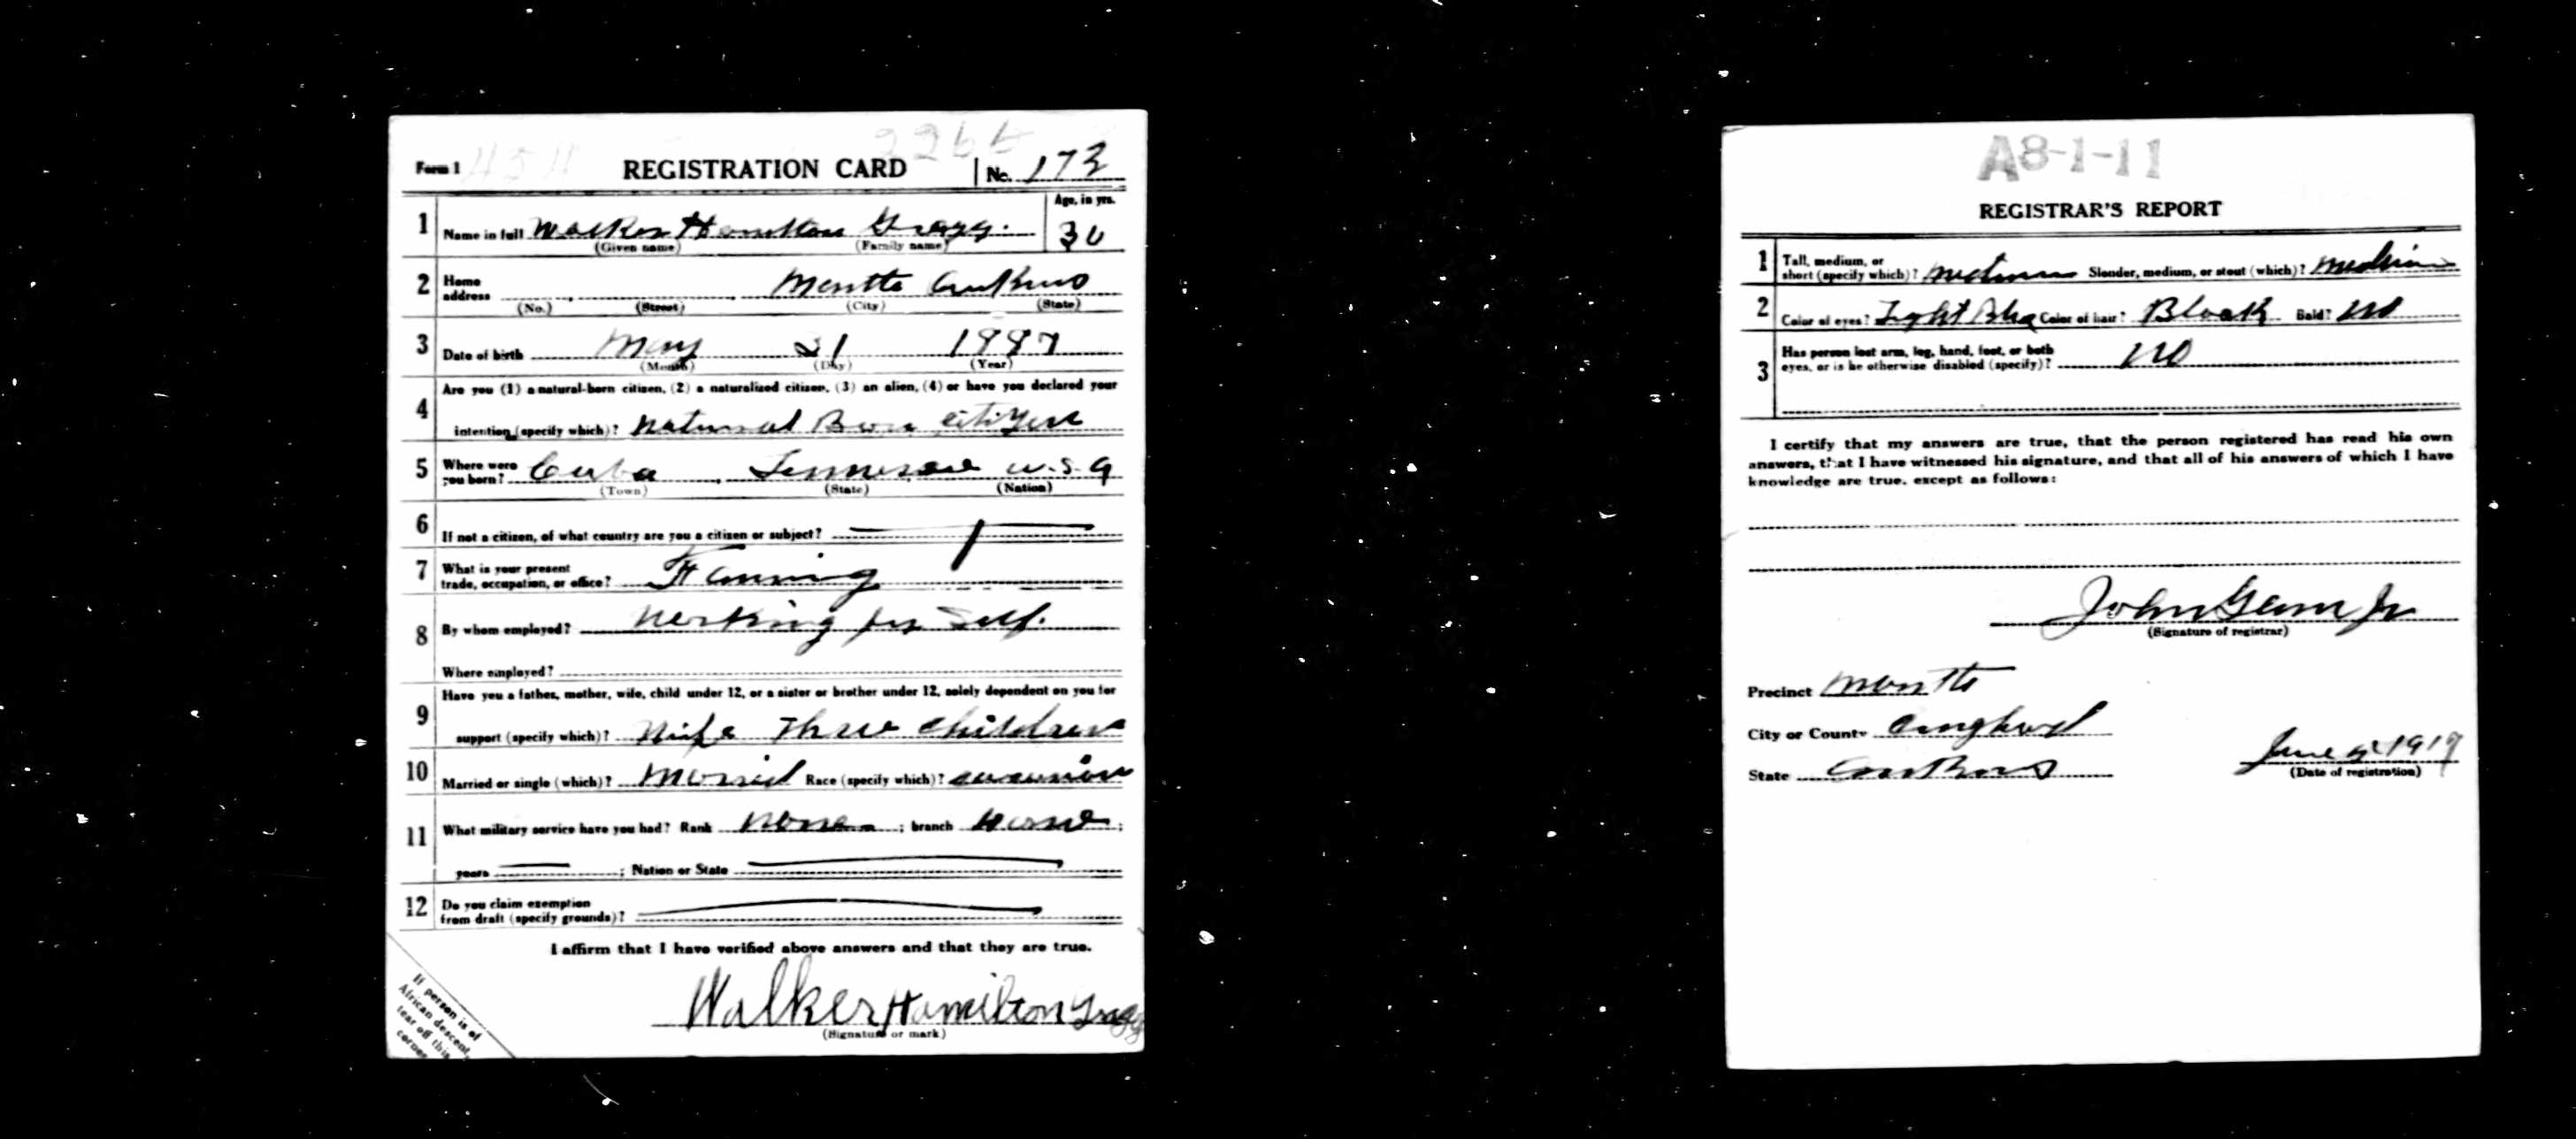 Form 1
REGISTRATION CARD
No. 173
1 Name in full Walker Hamilton Gragg.
(Given name) (Family name)
Age, in yrs.
30
2 Home address Monette
(No.) (Street) (City) (State)
3 Date of birth May 31 1887
(Month) (Day) (Year)
4 Are you (1) a natural-born citizen, (2) a naturalized citizen, (3) an alien, (4) or have you declared your
intention (specify which)? natural Born citizen
5 Where were you born? Cuba, Tennessee U.S.A
(Town) (State) (Nation)
6 If not a citizen, of what country are you a citizen or subject?
7 What is your present trade, occupation, or office? Farming
8 By whom employed? Working for Self.
Where employed?
9 Have you a father, mother, wife, child under 12, or a sister or brother under 12, solely dependent on you for
support (specify which)? Wife Three children
10 Married or single (which)? Married Race (specify which)?
11 What military service have you had? Rank None; branch None;
years ; Nation or State
12 Do you claim exemption from draft (specify grounds)?
I affirm that I have verified above answers and that they are true.
Walker Hamilton Gragg
(Signature or mark)
If person is of
African descent,
tear off this
corner.
A8-1-11
REGISTRAR'S REPORT
1 Tall, medium, or short (specify which)? medium Slender, medium, or stout (which)? medium
2 Color of eyes? Light Blue Color of hair? Black Bald? no
3 Has person lost arm, leg, hand, foot, or both
eyes, or is he otherwise disabled (specify)? no
I certify that my answers are true, that the person registered has read his own
answers, that I have witnessed his signature, and that all of his answers of which I have
knowledge are true, except as follows:
John
(Signature of registrar)
Precinct
City or County
State
June 5 1917
(Date of registration)